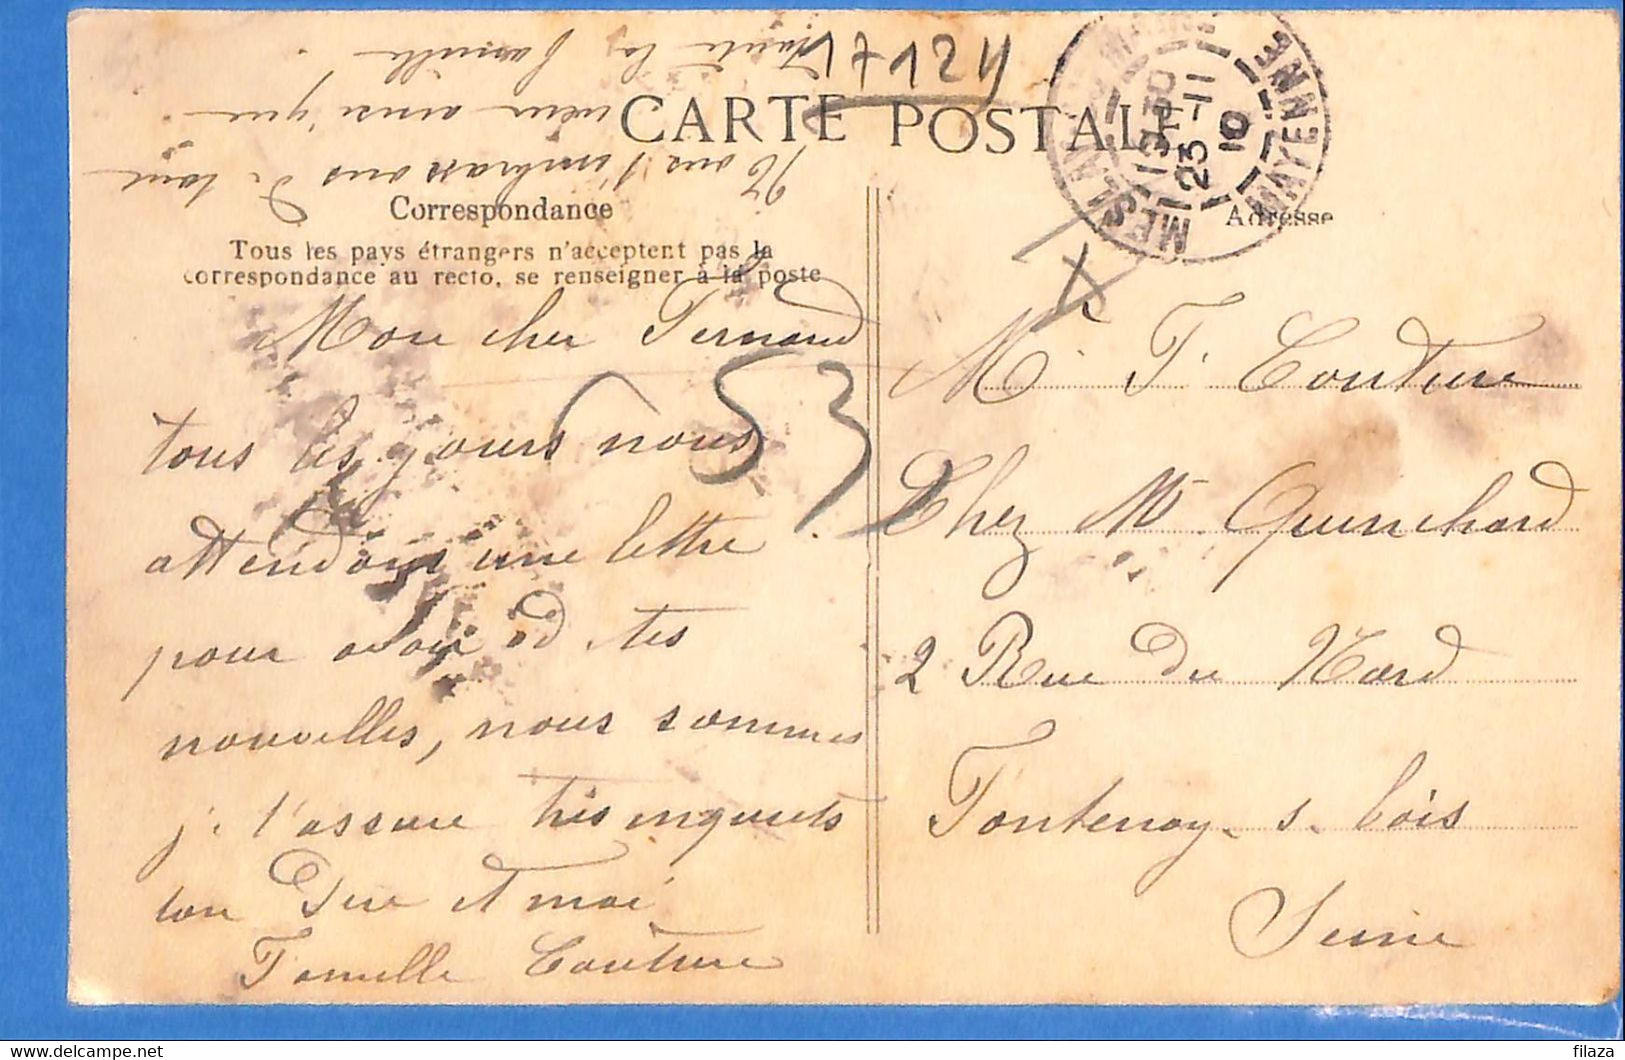 CARTE POSTALE
Correspondance
Tous les pays étrangers n'acceptent pas la
correspondance au recto, se renseigner à la poste
Adresse
Mon cher Fernand
tous les jours nous
attendons une lettre
pour avoir d tes
nouvelles, nous sommes
je t'assure très inquiets
ton Père et moi
Famille Couture
Nous t'embrassons de tout
cœur ainsi que
toute la famille.
17124
53
MAYENNE
13 30
23-11
10
M. F. Couture
Chez Mr Quinchard
2 Rue du Nord
Fontenay-s-bois
Seine
filaza